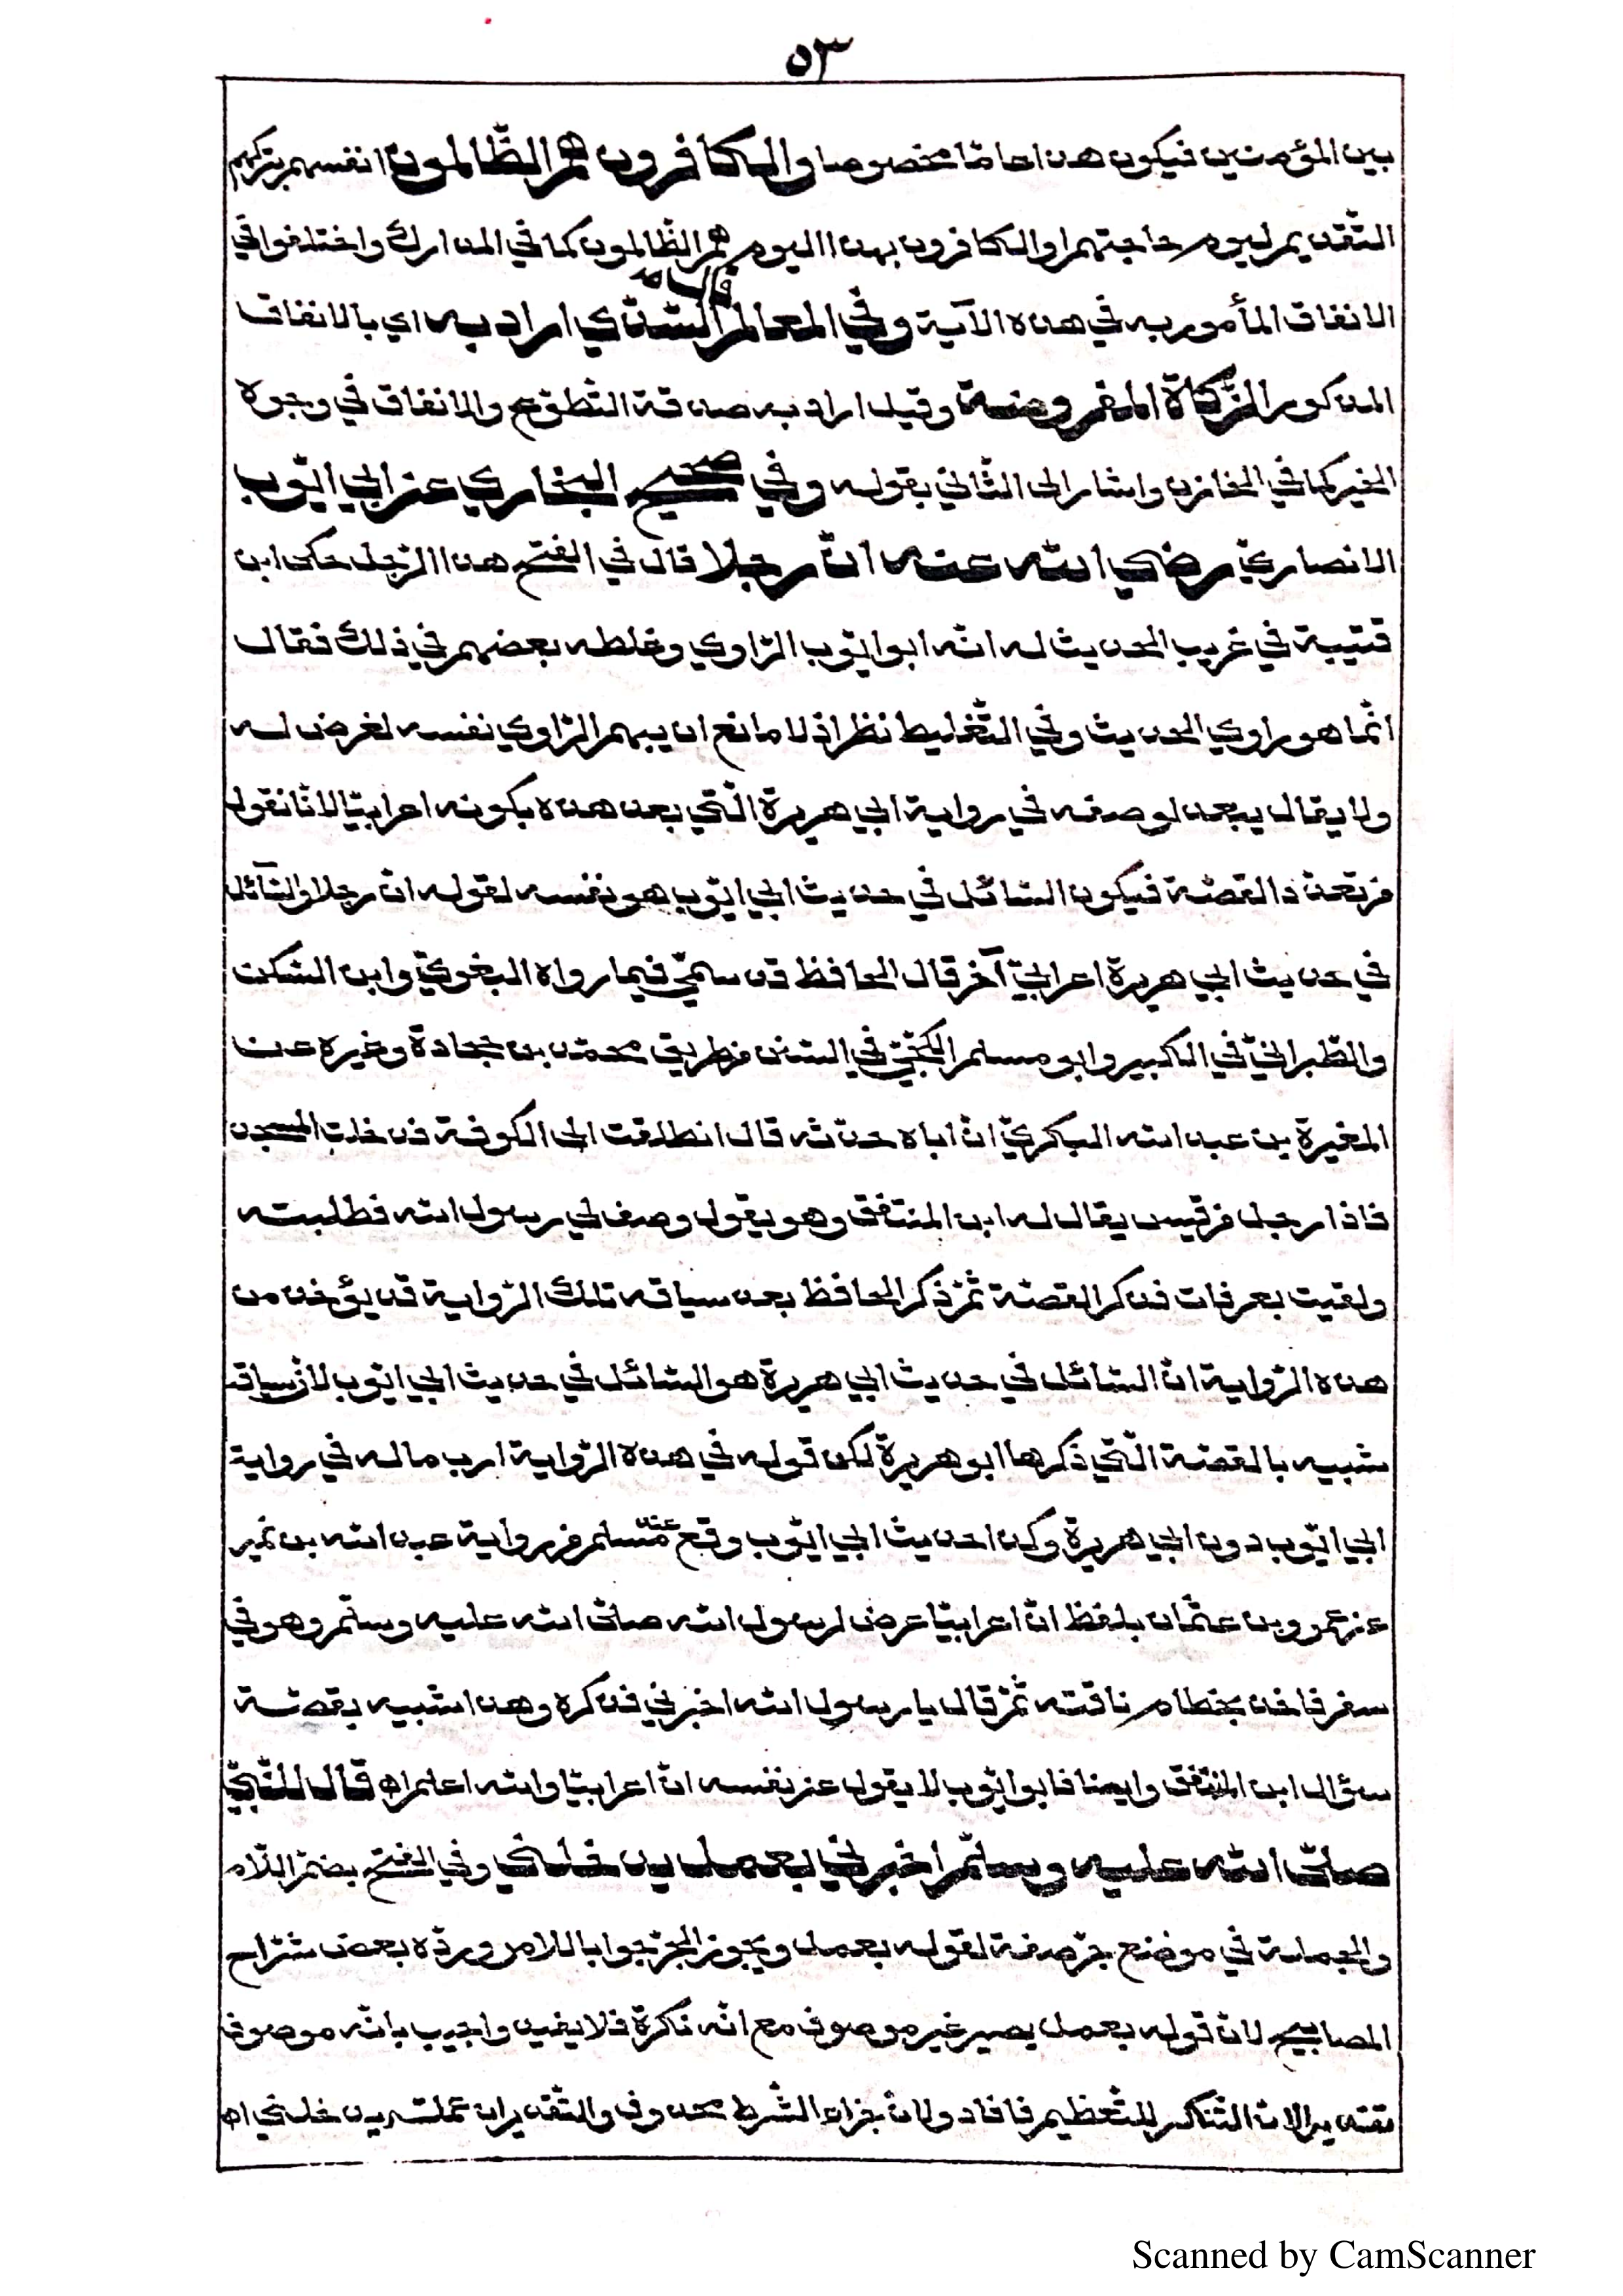 ٥٣
بين المؤمنين فيكون هذا عامّا مخصوصا والكافرون هم الظّالمون انفسهم بتركهم
التّقديم ليوم حاجتهم او الكافرون بهذا اليوم هم الظّالمون كما في المدارك واختلفوا في
قال
الانفاق المأمور به في هذه الآية وفي المعالم السّدّي اراد به اي بالانفاق
المذكور الزّكاة المفروضة وقيل اراد به صدقة التّطوّع والانفاق في وجوه
الخير كما في الخازن واشار الى الثّاني بقوله وفي صحيح البخاري عن ابي ايّوب
الانصاريّ رضي الله عنه انّ رجلا قال في الفتح هذا الرّجل حكى ابن
قتيبة في غريب الحديث له انّه ابو ايّوب الرّاوي وغلطه بعضهم في ذلك فقال
انّما هو راوي الحديث وفي التّغليط نظر اذ لا مانع ان يبهم الرّاوي نفسه لغرض له
ولا يقال يبعد لوصفه في رواية ابي هريرة الّتي بعد هذه بكونه اعرابيّا لانّا نقول
من تعدّد القصّة فيكون السّائل في حديث ابي ايّوب هو نفسه لقوله انّ رجلا والسّآئل
في حديث ابي هريرة اعرابيّ آخر قال الحافظ قد سمّي فيما رواه البغويّ وابن السّكن
والطّبرانيّ في الكبير وابو مسلم الكجّيّ في السّنن من طريق محمّد بن جحادة وغيره عن
المغيرة بن عبد الله اليشكريّ انّ اباه حدّثه قال انطلقت الى الكوفة فدخلت المسجد
فاذا رجل من قيس يقال له ابن المنتفق وهو يقول وصف لي رسول الله فطلبته
ولقيت بعرفات فذكر القصّة ثمّ ذكر الحافظ بعد سياقه تلك الرّواية قد يؤخذ من
هذه الرّواية انّ السّائل في حديث ابي هريرة هو السّائل في حديث ابي ايّوب لانّ سياقه
شبيه بالقصّة الّتي ذكرها ابو هريرة لكن قوله في هذه الرّواية ارب ماله في رواية
ابي ايّوب دون ابي هريرة وكذا حديث ابي ايّوب وقع عند مسلم من رواية عبد الله بن نمير
عن عمرو بن عثمان بلفظ انّ اعرابيّا عرض لرسول الله صلّى الله عليه وسلّم وهو في
سفر فاخذ بخطام ناقته ثمّ قال يا رسول الله اخبرني فذكره وهذا شبيه بقصّة
سؤال ابن المنتفق وايضا فابو ايّوب لا يقول عن نفسه انّ اعرابيّا والله اعلم اه قال للنّبيّ
صلّى الله عليه وسلّم اخبرني بعمل يدخلني وفي الفتح بضمّ اللّام
والجملة في موضع جرّ صفة لقوله بعمل ويجوز الجزم جوابا للامر وردّه بعض شرّاح
المصابيح لانّ قوله بعمل يصير غير موصوف مع انّه نكرة فلا يفيد واجيب بانّه موصوف
تقديرا لانّ التّنكير للتّعظيم فافاد ولانّ جزاء الشّرط محذوف والتّقدير ان عملته يدخلني اه
Scanned by CamScanner